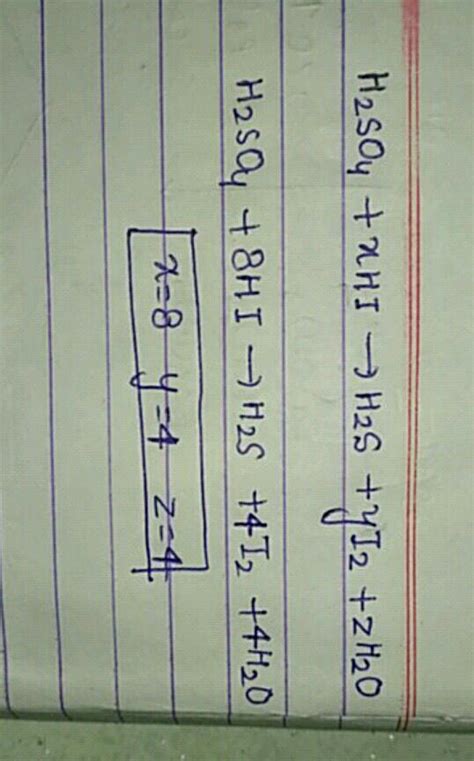 H₂SO₄ + xHI → H₂S + yI₂ + zH₂O
H₂SO₄ + 8HI → H₂S + 4I₂ + 4H₂O
x=8 y=4 z=4